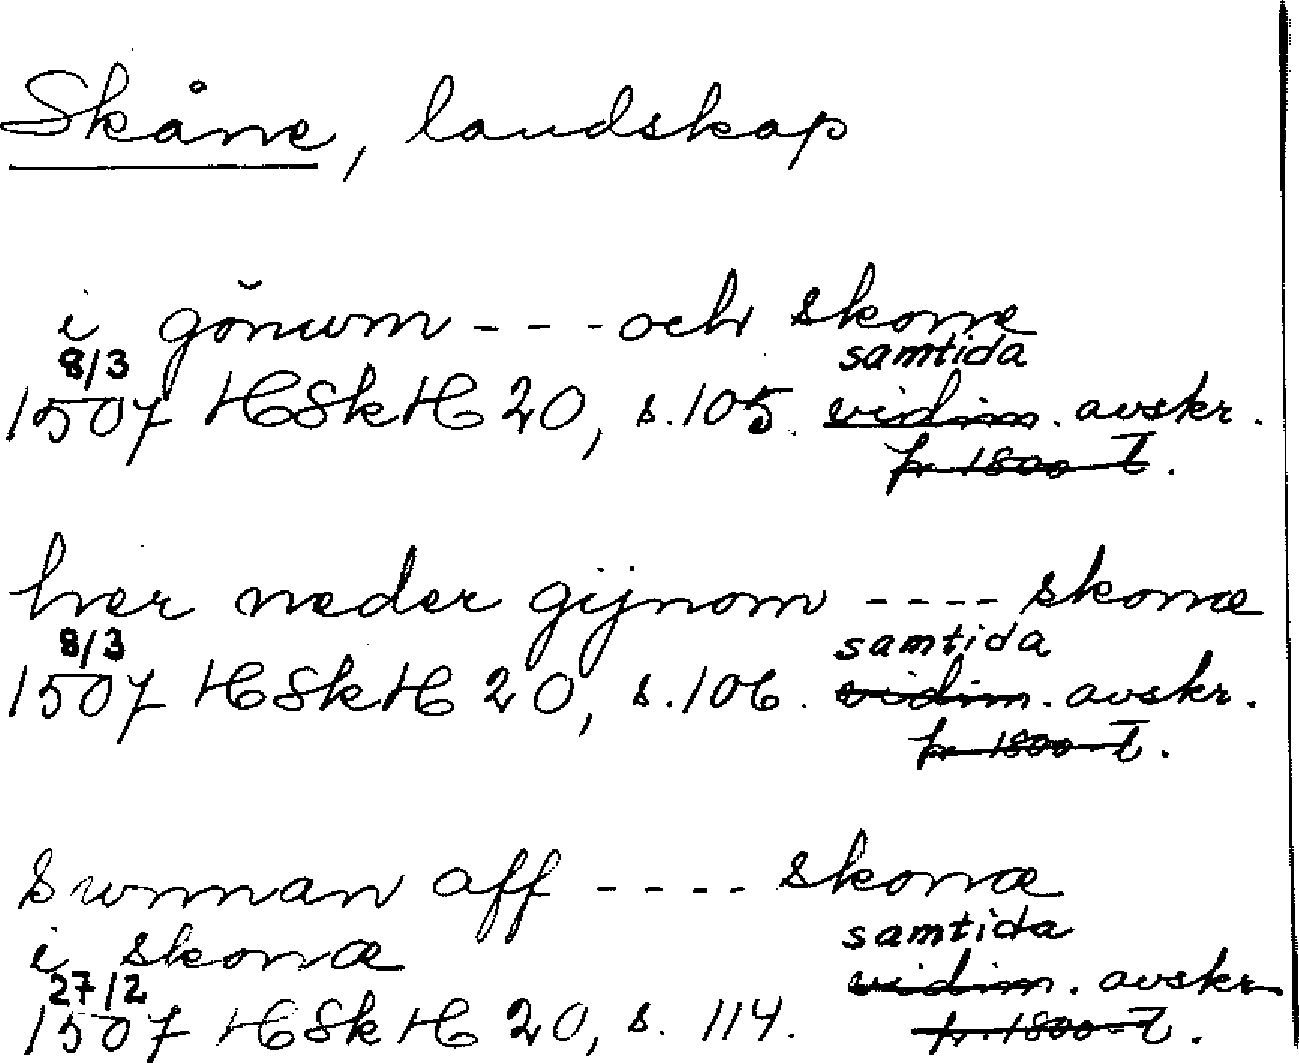 Skåne, landskap
i gönum - - - och skone
8/3 samtida
1507 HSkH 20, s. 105. vidim. avskr.
fr 1800-t.
her neder gijnom - - - - skonæ
8/3 samtida
1507 HSkH 20, s. 106. vidim. avskr.
fr 1800-t.
sunnan aff - - - - skonæ
i skonæ samtida
27/2 vidim. avskr.
1507 HSkH 20, s. 114. fr. 1800-t.